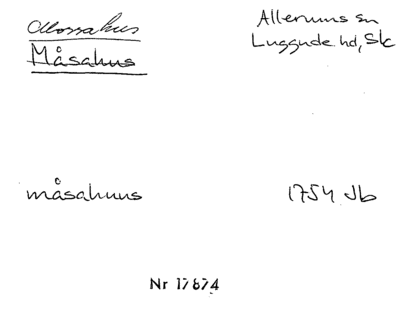 Mossahus
Allerums sn
Måsahus
Luggude hd, Sk
måsahuus
1754 Jb
Nr 17874